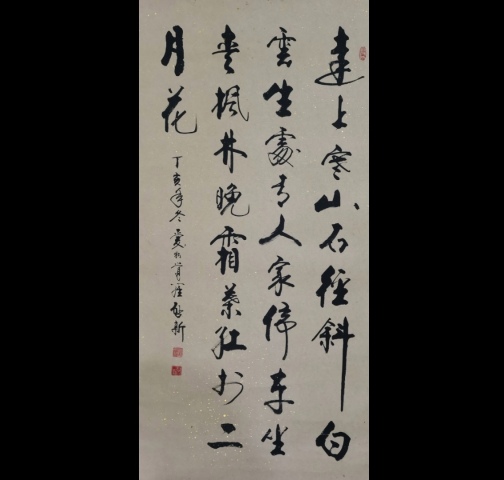 遠上寒山石徑斜白
雲生處有人家停車坐
愛楓林晚霜葉紅於二
月花
丁亥年冬